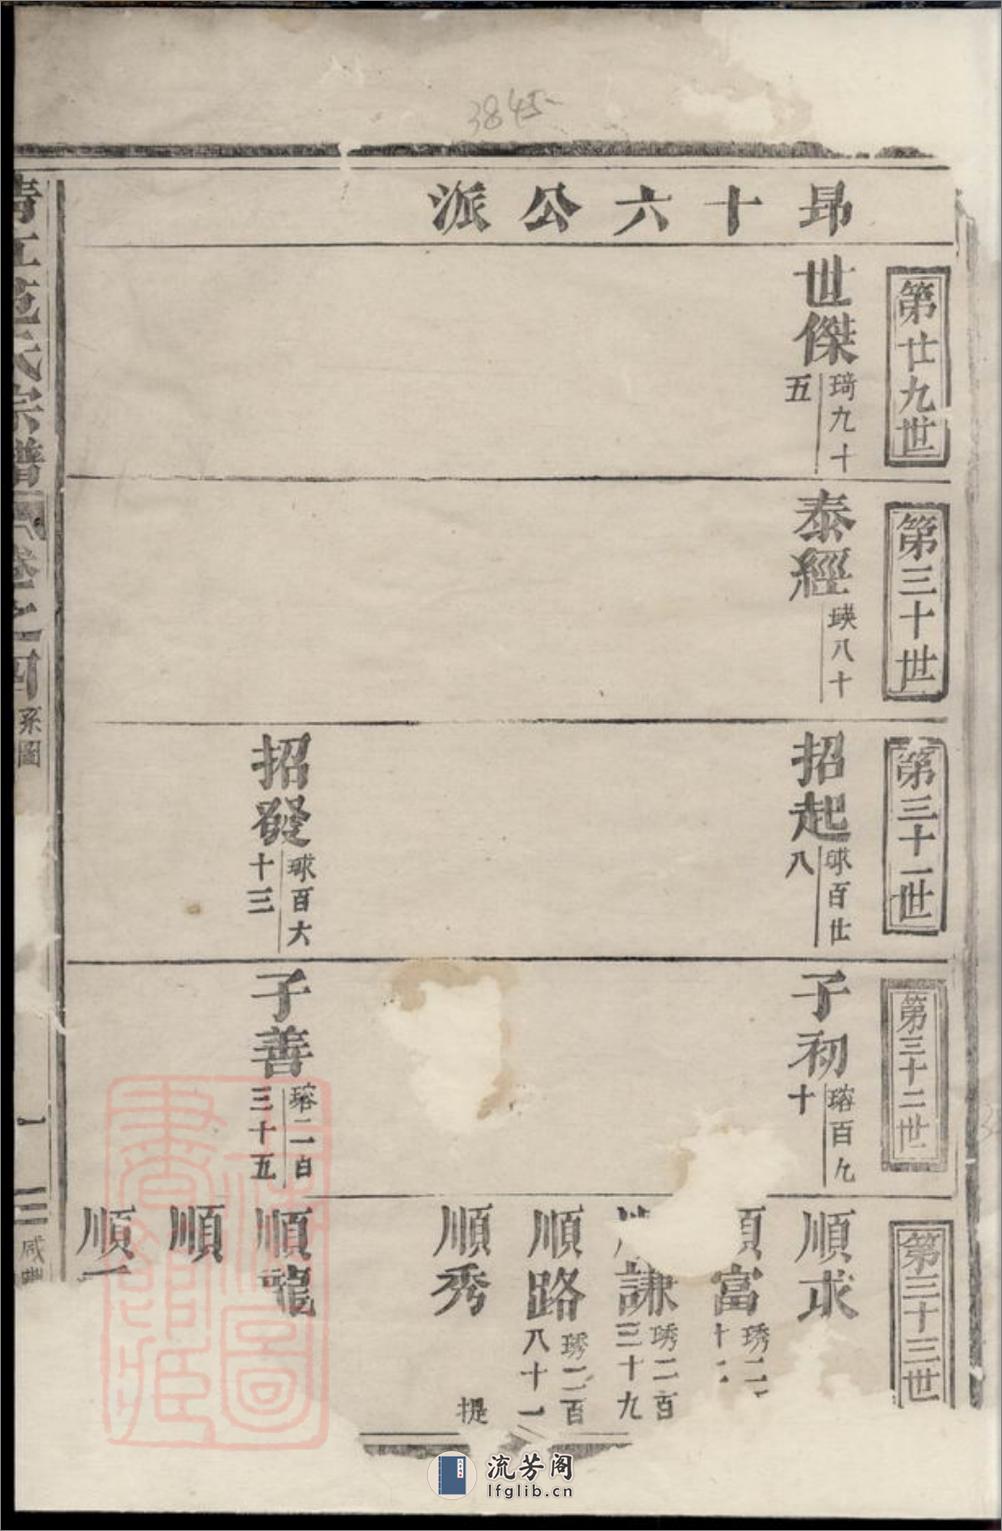 3845
昂十六公派
第廿九世
世傑 琦九十五
第三十世
泰經 瑛八十
第三十一世
招起 球百廿八
招發 球百六十三
第三十二世
子初 瑢百九十
子善 瑢二百三十五
第三十三世
順求
順富 琇二
順謙 琇二百三十九
順路 琇二百八十一
順秀 提
順龍
順
順
范氏宗譜 卷之四 系圖
一
流芳阁
lfglib.cn